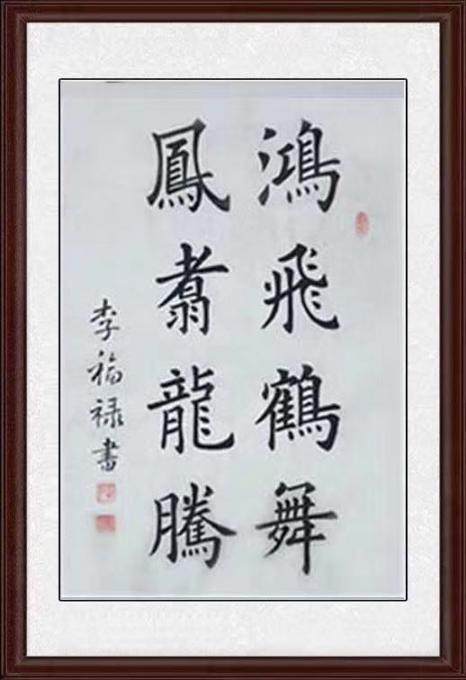 鴻飛鶴舞
鳳翥龍騰
李福禄書